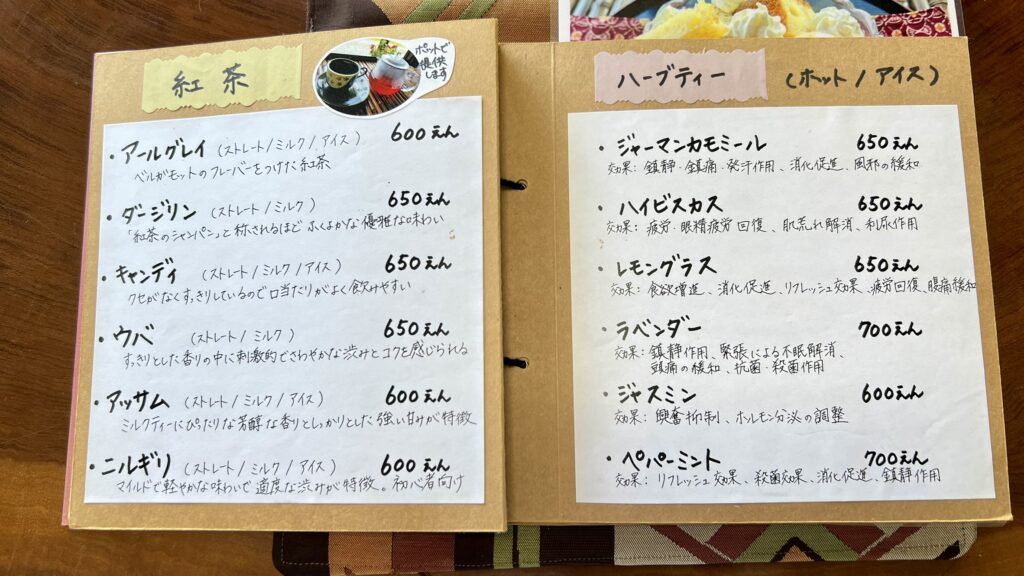 紅茶
ポットで
提供
します
・アールグレイ (ストレート/ミルク/アイス) 600えん
ベルガモットのフレーバーをつけた紅茶
・ダージリン (ストレート/ミルク) 650えん
「紅茶のシャンパン」と称されるほどふくよかな優雅な味わい
・キャンディ (ストレート/ミルク/アイス) 650えん
クセがなくすっきりしているので口当たりがよく飲みやすい
・ウバ (ストレート/ミルク) 650えん
すっきりとした香りの中に刺激的でさわやかな渋みとコクを感じられる
・アッサム (ストレート/ミルク/アイス) 600えん
ミルクティーにぴったりな芳醇な香りとしっかりとした強い甘みが特徴
・ニルギリ (ストレート/ミルク/アイス) 600えん
マイルドで軽やかな味わいで適度な渋みが特徴。初心者向け
ハーブティー (ホット/アイス)
・ジャーマンカモミール 650えん
効果: 鎮静・鎮痛・発汗作用、消化促進、風邪の緩和
・ハイビスカス 650えん
効果: 疲労・眼精疲労回復、肌荒れ解消、利尿作用
・レモングラス 650えん
効果: 食欲増進、消化促進、リフレッシュ効果、疲労回復、腹痛緩和
・ラベンダー 700えん
効果: 鎮静作用、緊張による不眠解消、
頭痛の緩和、抗菌・殺菌作用
・ジャスミン 600えん
効果: 興奮抑制、ホルモン分泌の調整
・ペパーミント 700えん
効果: リフレッシュ効果、殺菌効果、消化促進、鎮静作用